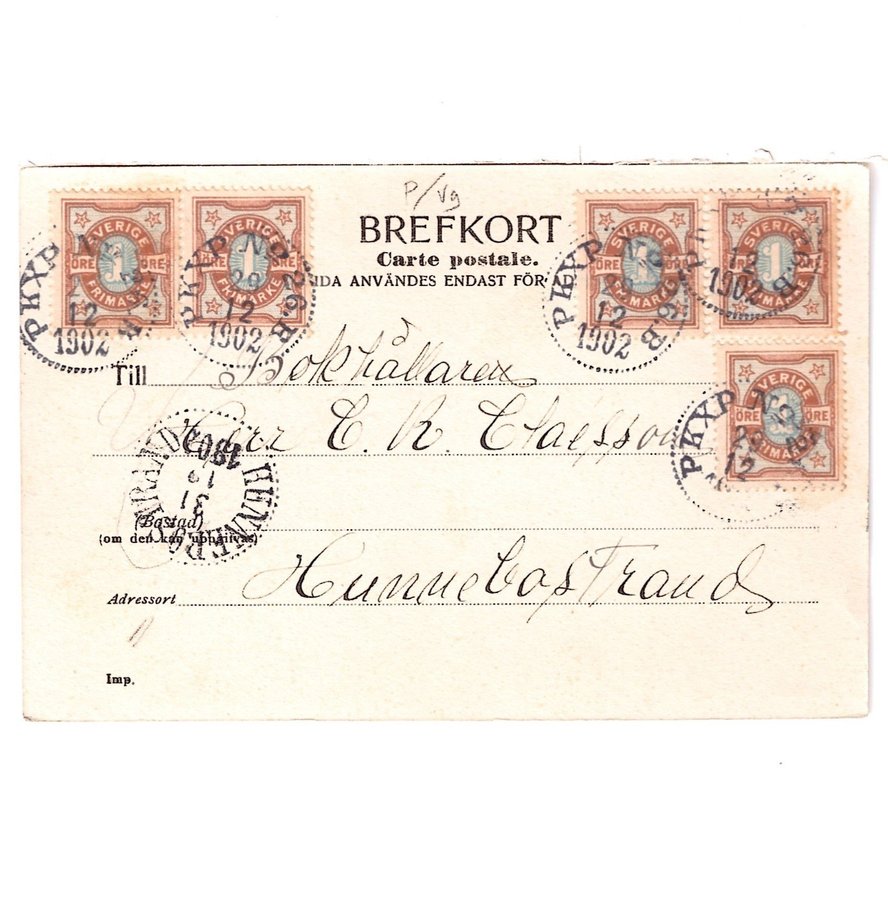 P/Vg
BREFKORT
Carte postale.
IDA ANVÄNDES ENDAST FÖR
SVERIGE 1 ÖRE ÖRE FRIMÄRKE
SVERIGE 1 ÖRE ÖRE FRIMÄRKE
SVERIGE 1 ÖRE ÖRE FRIMÄRKE
SVERIGE 1 ÖRE ÖRE FRIMÄRKE
SVERIGE 1 ÖRE ÖRE FRIMÄRKE
PKXP No
12
1902
PKXP No 26.B.
29
12
1902
PKXP No 26.B.
12
1902
12
1902
PKXP No
29
12
Till Bokhållaren
Herr C. R. Claesson
HUNNEBOSTRAND
31
12
1902
(Bostad)
(om den kan uppgifvas)
Adressort Hunnebostrand
Imp.